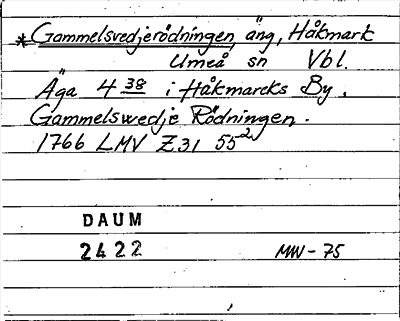 *Gammelsvedjerödningen, äng, Håkmark
Umeå sn Vbl.
Äga 4 38 i Håkmarcks By.
Gammelswedje Rödningen.
1766 LMV Z31 55-2
DAUM
2422
MW-75